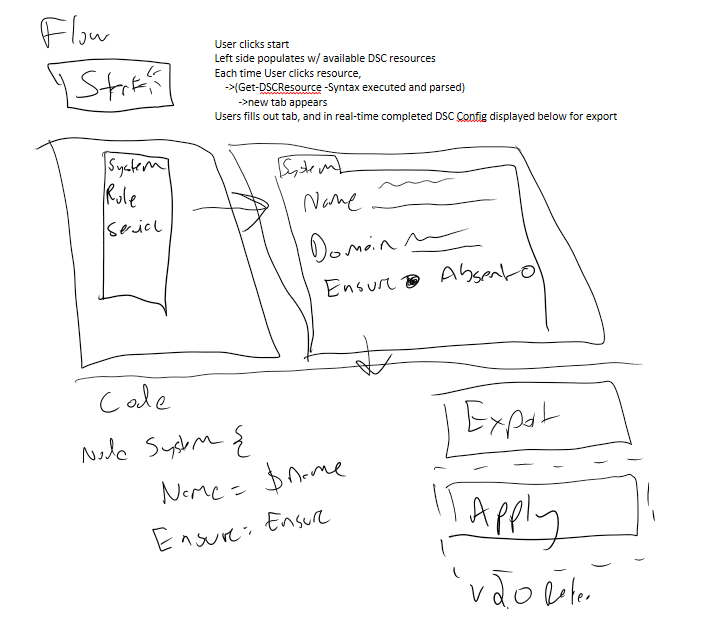 Flow
Start
User clicks start
Left side populates w/ available DSC resources
Each time User clicks resource,
->(Get-DSCResource -Syntax executed and parsed)
->new tab appears
Users fills out tab, and in real-time completed DSC Config displayed below for export
System
Role
System
Name
Domain
Ensure Absent
Code
Node System {
Name = $name
Ensure = Ensure
Export
Apply
v2.0